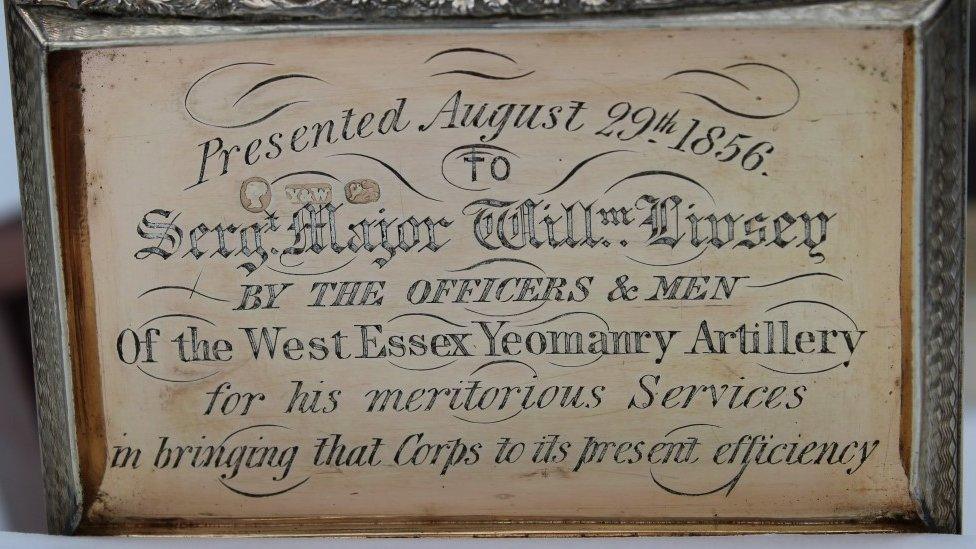 Presented August 29th. 1856.
TO
Y&W
Sergt. Major Willm. Livsey
BY THE OFFICERS & MEN
Of the West Essex Yeomanry Artillery
for his meritorious Services
in bringing that Corps to its present efficiency